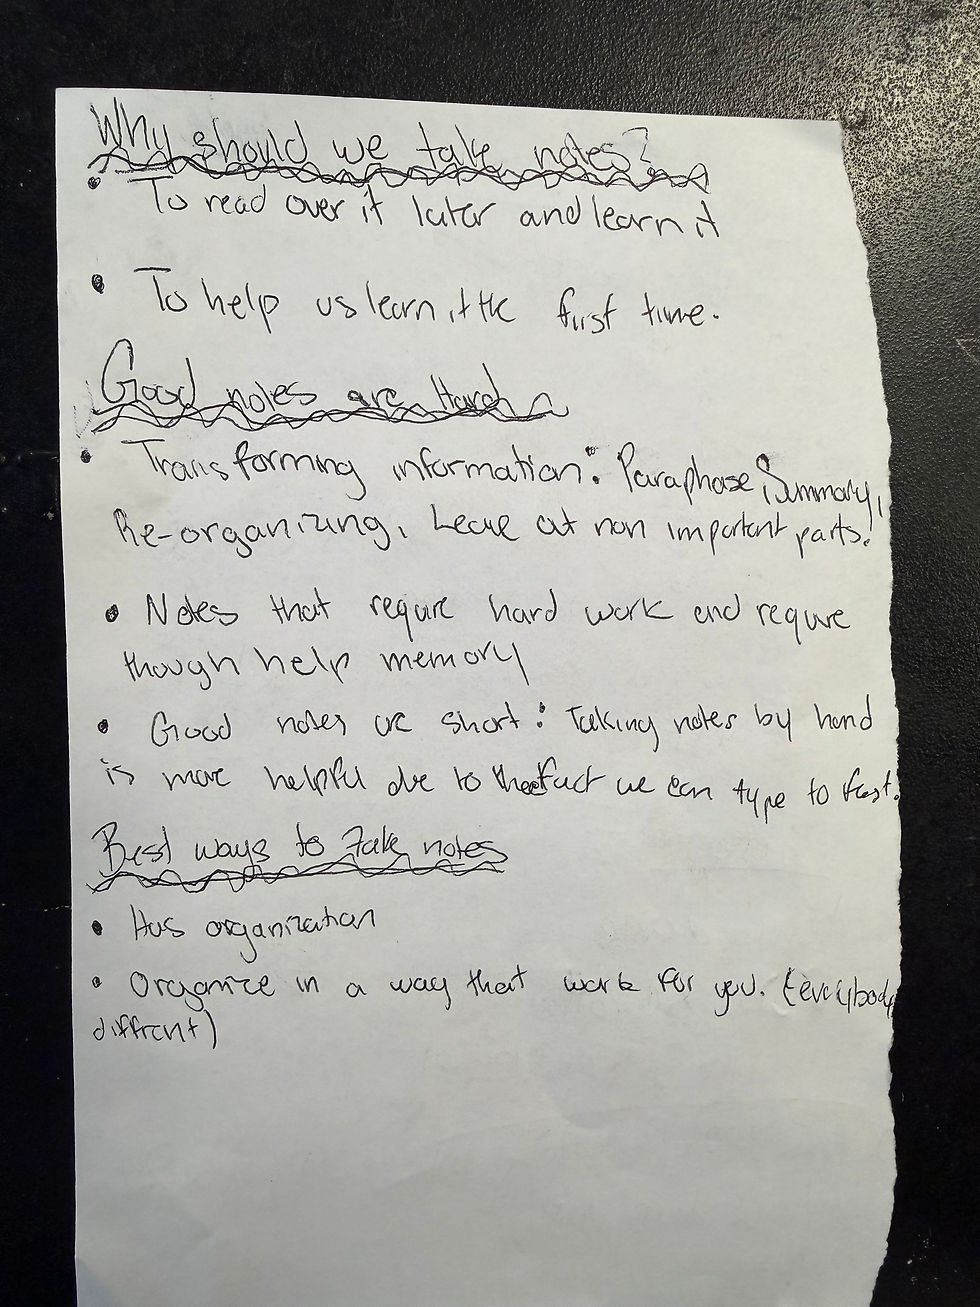 Why should we take notes?
• To read over it later and learn it
• To help us learn it the first time.
Good notes are Hard
• Transforming information: Paraphase, Summary,
Re-organizing, Leave out non important parts.
• Notes that require hard work and require
though help memory
• Good notes are short: Taking notes by hand
is more helpful due to the fact we can type to fast.
Best ways to take notes
• Has organization
• Organize in a way that work for you. (everybody
diffrent)